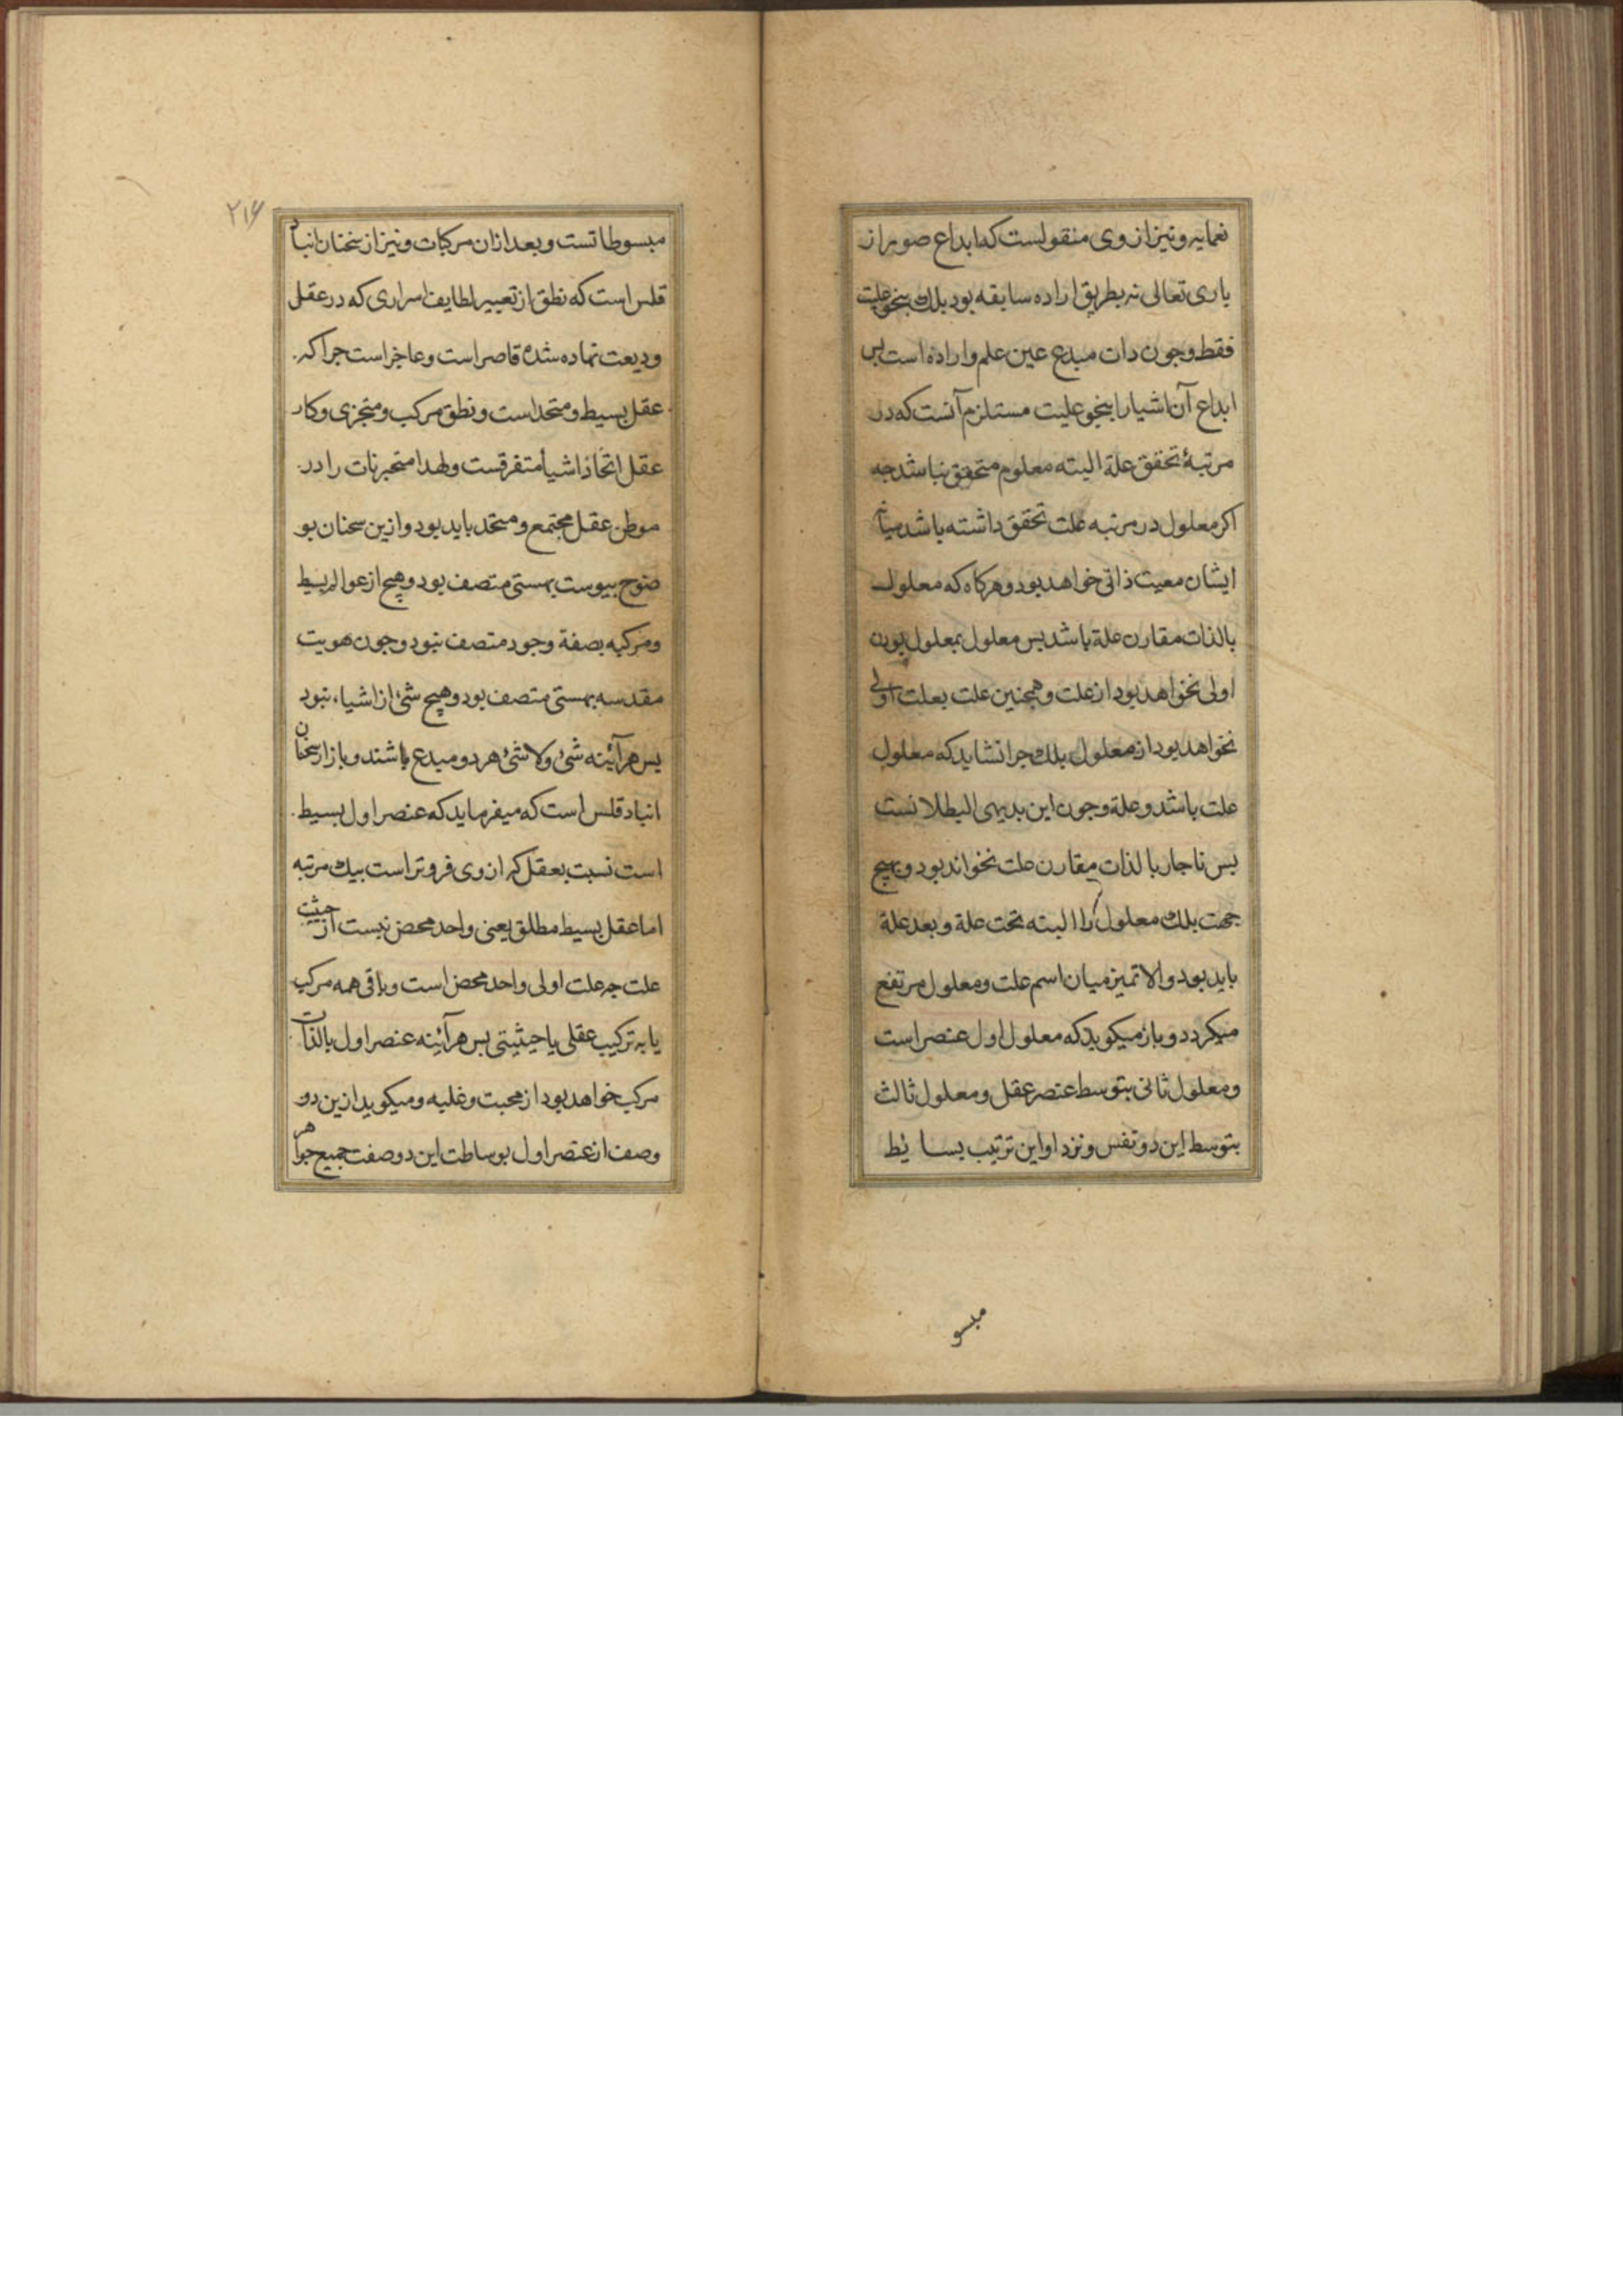 نماید و نیز از وی منقولست که ابداع صور از
باری تعالی نه بطریق اراده سابقه بود بلکه بنحو علیت
فقط و چون ذات مبدع عین علم و اراده است پس
ابداع آن اشیا را بنحو علیت مستلزم آنست که در
مرتبهٔ تحقق علة البته معلوم متحقق نباشد جه
اکر معلول در مرتبه علت تحقق داشته باشد میان
ایشان معیت ذاتی خواهد بود و هرکاه که معلول
بالذات مقارن علة باشد بس معلول بمعلول بودن
اولی نخواهد بود از علت و همجنین علت بعلت اولی
نخواهد بود از معلول بلکه جرا نشاید که معلول
علت باشد و علة وجون این بدیهی البطلانست
بس ناجار بالذات مقارن علت نخواند بود و بهیچ
جهت بلکه معلول را البته تحت علة و بعد علة
باید بود والا تمیز میان اسم علت و معلول مرتفع
میکردد و باز میکوید که معلول اول عنصر است
و معلول ثانی بتوسط عنصر عقل و معلول ثالث
بتوسط این دو نفس و نزد او این ترتیب بسایط
مبسو
۲۱۶
مبسوطاتست و بعد ازان مرکبات و نیز از سخنان انباد
قلس است که نطق از تعبیر لطایف اسراری که در عقل
ودیعت نهاده شده قاصر است و عاجز است جرا که
عقل بسیط و متحد است و نطق مرکب و متجزی و کار
عقل اتحاد اشیأ متفرقست و لهدا متحیزات را در
موطن عقل مجتمع و متحد باید بود و ازین سخنان بو
ضوح بیوست بهستی متصف بود و هیچ از عوالم بسیط
و مرکبه بصفة وجود متصف نبود و جون هویت
مقدسه بهستی متصف بود و هیچ شئ از اشیاء نبود
بس هرآئینه شئ و لاشئ هر دو مبدع باشند و باز از سخنان
انباد قلس است که میفرماید که عنصر اول بسیط
است نسبت بعقل که از وی فروتر است بیک مرتبه
اما عقل بسیط مطلق یعنی واحد محض نیست از حیثیت
علت جه علت اولی واحد محض است و باقی همه مرکب
یا به ترکیب عقلی یا حیثیتی بس هرآئینه عنصر اول بالذات
مرکب خواهد بود از محبت و غلبه و میکوید ازین دو
وصف از عنصر اول بوساطت این دو صفت جمیع جواهر